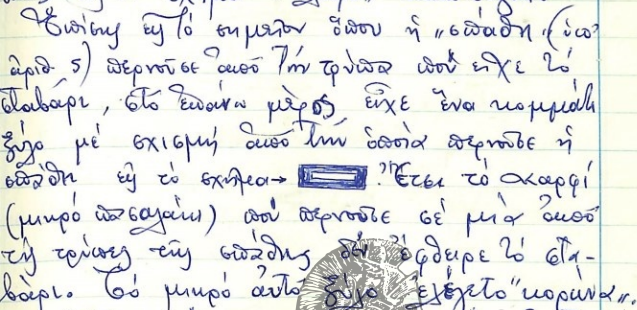 Ἐπίσης εἰς τό σημεῖον ὅπου ἡ „σπάθη" (ὑπ'
ἀριθ. 5) περνοῦσε ἀπό τήν τρύπα πού εἶχε τό
σταβάρι, στό ἐπάνω μέρος εἶχε ἕνα κομμάτι
ξύλο μέ σχισμή ἀπό τήν ὁποία περνοῦσε ἡ
σπάθη εἰς τό σχῆμα → . Ἔτσι τό καρφί
(μικρό πασαλάκι) πού περνοῦσε σέ μία ἀπό
τίς τρύπες τῆς σπάθης δέν ἔφθειρε τό στα-
βάρι. Τό μικρό αὐτό ξύλο ἐλέγετο "κορώνα".